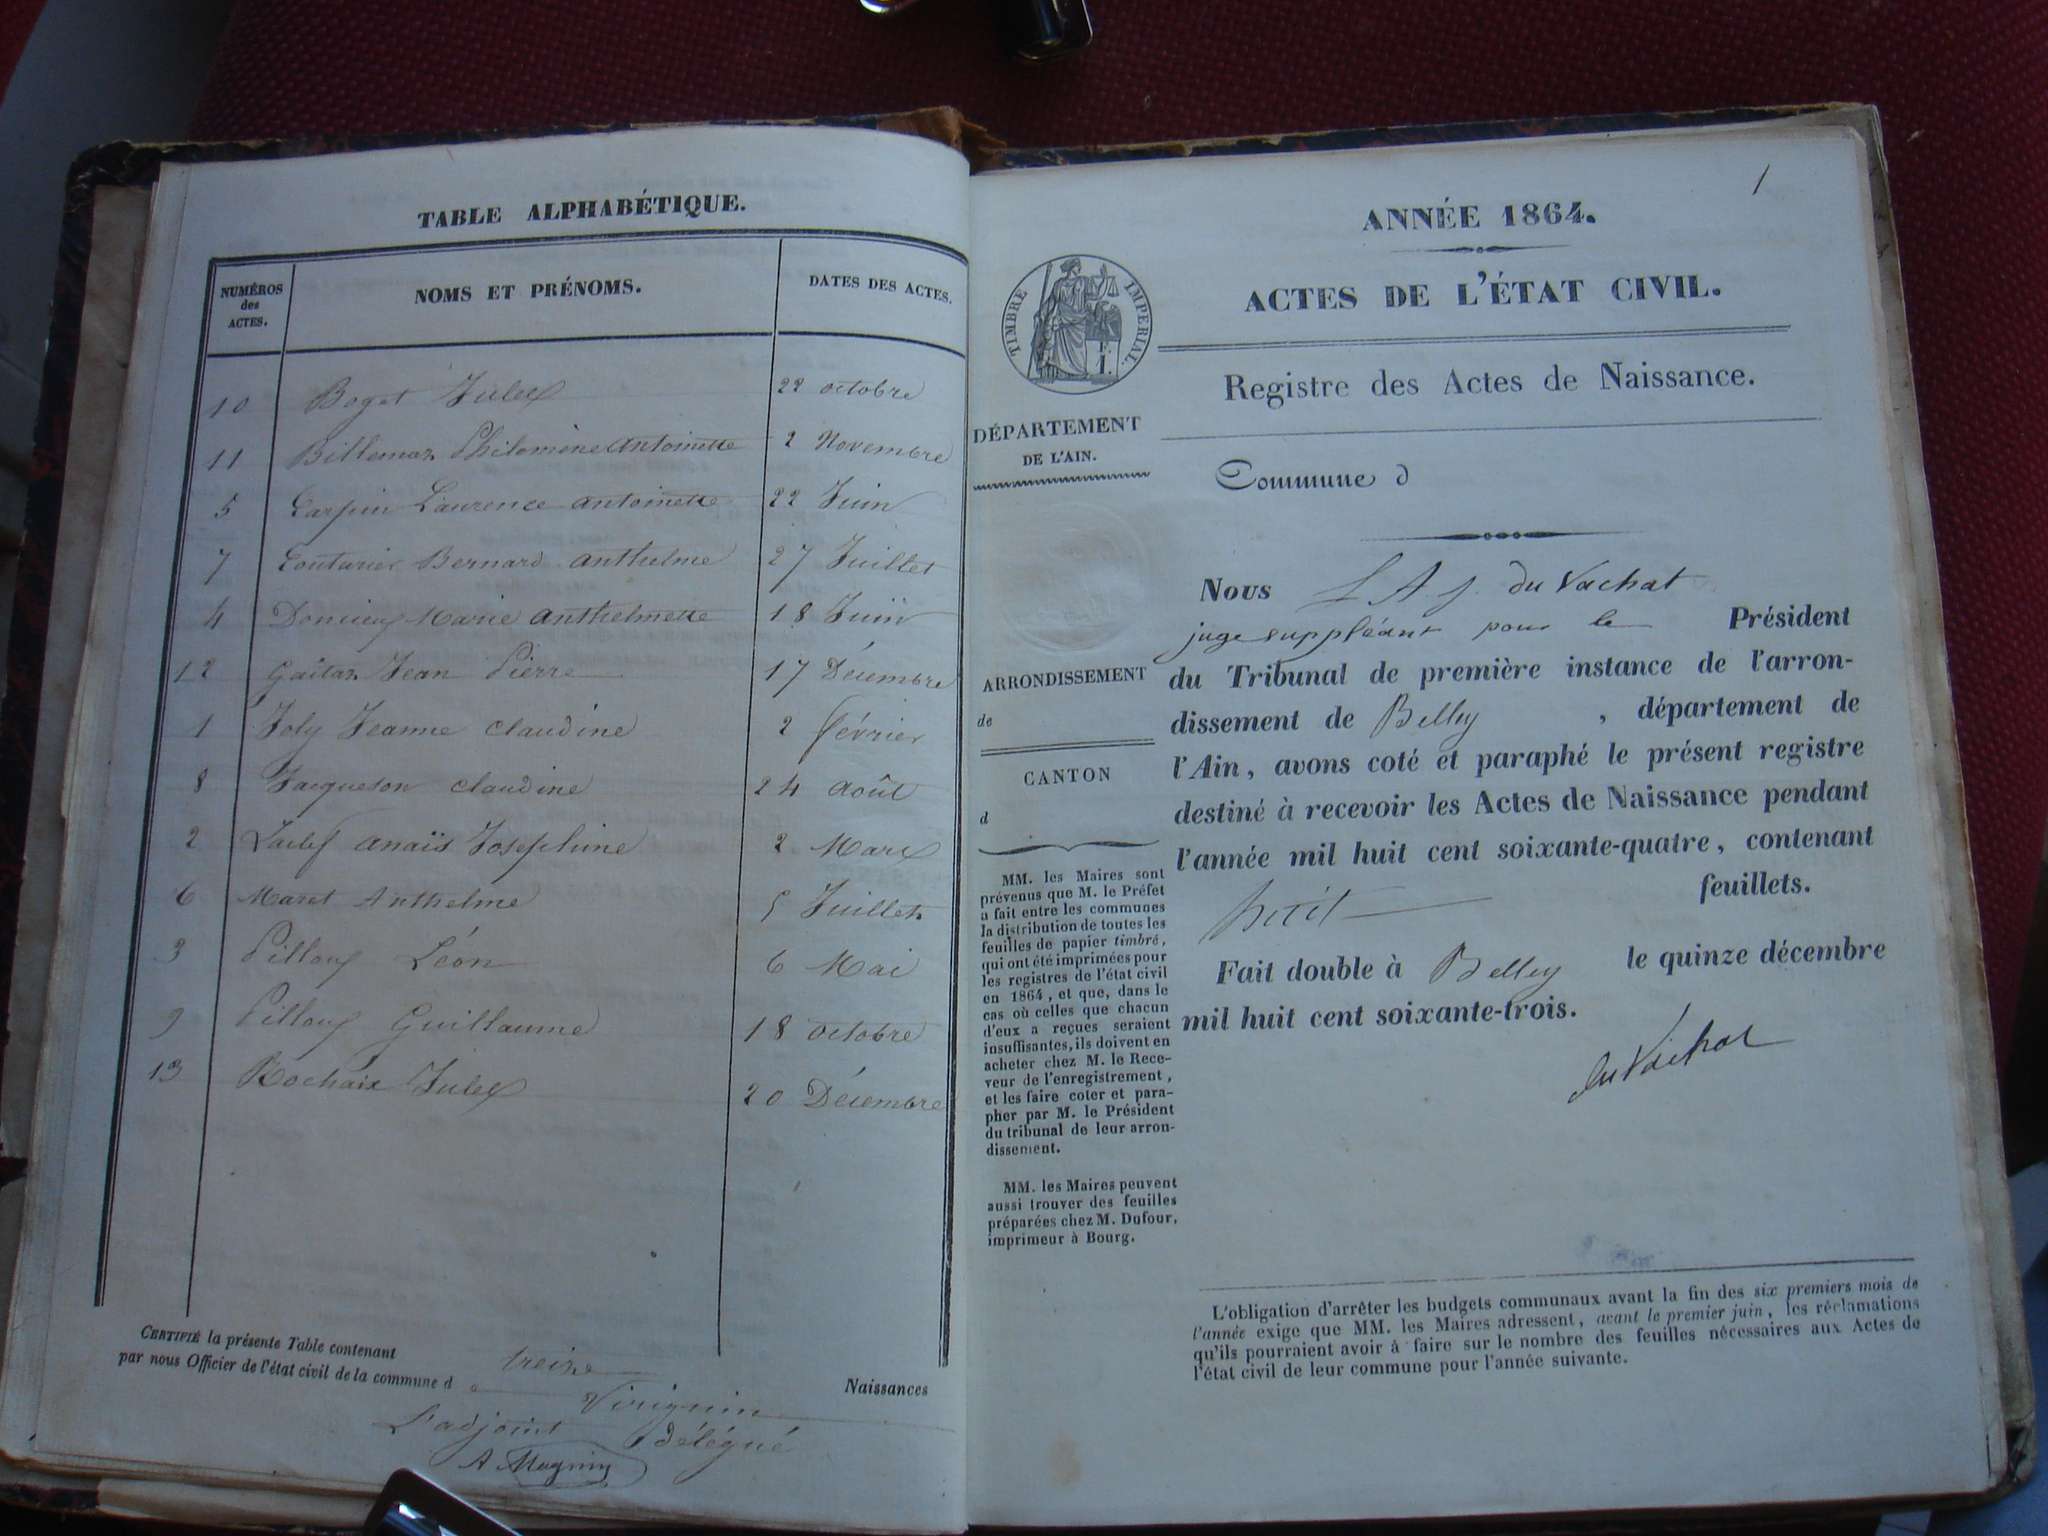 TABLE ALPHABÉTIQUE.
NUMÉROS des ACTES. NOMS ET PRÉNOMS. DATES DES ACTES.
10 Boget Jules 22 octobre
11 Billemaz Philomène Antoinette 2 Novembre
5 Carpin Laurence Antoinette 22 Juin
7 Couturier Bernard Anthelme 27 Juillet
4 Marie Anthelmette 18 Juin
12 Jean Pierre 17 Décembre
1 Joly Jeanne Claudine 2 février
8 Jacqueson Claudine 24 Août
2 Anaïs Joséphine 2 Mars
6 Maret Anthelme 5 Juillet
3 Pilloux Léon 6 Mai
9 Pilloux Guillaume 18 octobre
13 Rochaix Jules 20 Décembre
CERTIFIÉ la présente Table contenant treize Naissances
par nous Officier de l'état civil de la commune d e Virignin
L'adjoint délégué
A Magnin
1
ANNÉE 1864.
ACTES DE L'ÉTAT CIVIL.
Registre des Actes de Naissance.
TIMBRE IMPERIAL.
DÉPARTEMENT
DE L'AIN.
Commune d
ARRONDISSEMENT
de
CANTON
d
MM. les Maires sont
prévenus que M. le Préfet
a fait entre les communes
la distribution de toutes les
feuilles de papier timbré,
qui ont été imprimées pour
les registres de l'état civil
en 1864, et que, dans le
cas où celles que chacun
d'eux a reçues seraient
insuffisantes, ils doivent en
acheter chez M. le Rece-
veur de l'enregistrement,
et les faire coter et para-
pher par M. le Président
du tribunal de leur arron-
dissement.
MM. les Maires peuvent
aussi trouver des feuilles
préparées chez M. Dufour,
imprimeur à Bourg.
Nous L A J. du Vachat
juge suppléant pour le Président
du Tribunal de première instance de l'arron-
dissement de Belley , département de
l'Ain, avons coté et paraphé le présent registre
destiné à recevoir les Actes de Naissance pendant
l'année mil huit cent soixante-quatre, contenant
huit feuillets.
Fait double à Belley le quinze décembre
mil huit cent soixante-trois.
du Vachat
L'obligation d'arrêter les budgets communaux avant la fin des six premiers mois de
l'année exige que MM. les Maires adressent, avant le premier juin, les réclamations
qu'ils pourraient avoir à faire sur le nombre des feuilles nécessaires aux Actes de
l'état civil de leur commune pour l'année suivante.